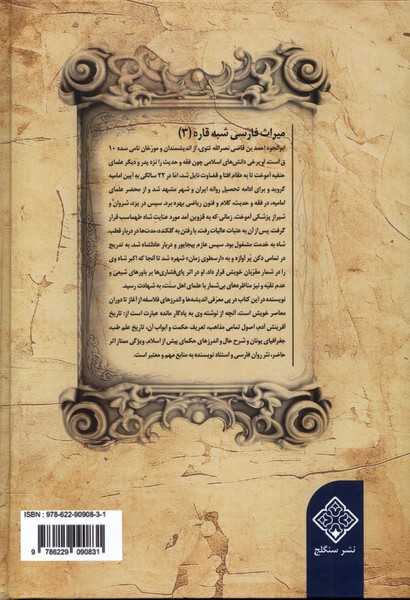 میراث فارسی شبه قاره (۳)
ابوالجود احمد بن قاضی نصرالله تتوی، از اندیشمندان و مورّخان نامی سده ۱۰
ق است. او برخی دانش‌های اسلامی چون فقه و حدیث را نزد پدر و دیگر علمای
حنفیه آموخت تا به مقام افتا و قضاوت نایل شد، امّا در ۲۲ سالگی به آیین امامیه
گروید و برای ادامه تحصیل روانه ایران و شهر مشهد شد و از محضر علمای
امامیه، در فقه و حدیث، کلام و فنون ریاضی بهره برد. سپس در یزد، شروان و
شیراز پزشکی آموخت. زمانی که به قزوین آمد مورد عنایت شاه طهماسب قرار
گرفت. پس از آن به عتبات عالیات رفت، با رفتن به گلکنده، مدت‌ها در دربار قطب‌
شاه به خدمت مشغول بود. سپس عازم بیجاپور و دربار عادلشاه شد. به تدریج
در تمامی دکن پرآوازه و به «ارسطوی زمان» شهره شد تا آنجا که اکبر شاه وی
را در شمار مقرّبان خویش قرار داد. او در اثر پای‌فشاری‌ها بر باورهای شیعی و
عدم تقیّه و نیز مناظره‌های بی‌شمار با علمای اهل سنّت، به شهادت رسید.
نویسنده در این کتاب در پی معرفی اندیشه‌ها و اندرزهای فلاسفه از آغاز تا دوران
معاصر خویش است. آنچه از نوشته وی به یادگار مانده عبارت است از: تاریخ
آفرینش آدم، اصول تمامی مذاهب، تعریف حکمت و ابواب آن، تاریخ علم طب،
جغرافیای یونان و شرح حال و اندرزهای حکمای پیش از اسلام. ویژگی ممتاز اثر
حاضر، نثر روان فارسی و استناد نویسنده به منابع مهم و معتبر است.
ISBN : 978-622-90908-3-1
9 786229 090831
نشر سنگلج